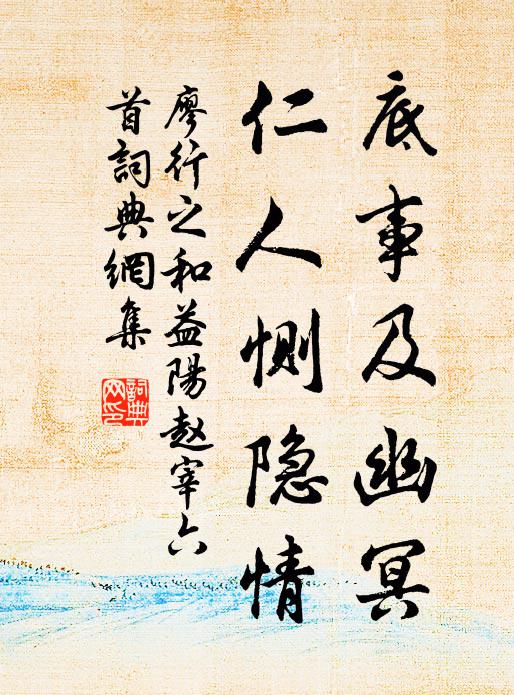 底事及幽冥
仁人恻隐情
廖行之和益陽赵宰六
首詞典網集
詞典
网印